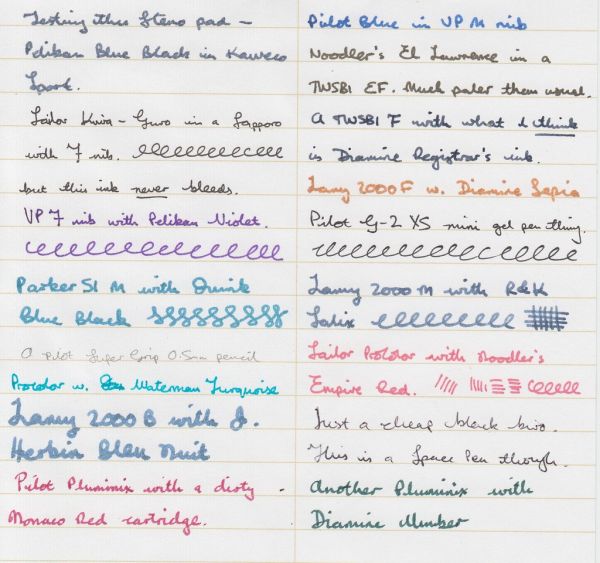 Testing this Steno pad -
Pelikan Blue Black in Kaweco
Sport.
Sailor Kiwa-Guro in a Sapporo
with F nib.
but this ink never bleeds.
VP F nib with Pelikan Violet.
Parker 51 M with Quink
Blue Black
A Pilot Super Grip 0.5mm pencil
Procolor w. Waterman Turquoise
Lamy 2000 B with J.
Herbin Bleu Nuit
Pilot Plumimix with a dirty -
Monaco Red cartridge.
Pilot Blue in VP M nib
Noodler's El Lawrence in a
TWSBI EF. Much paler than usual.
A TWSBI F with what I think
is Diamine Registrar's ink.
Lamy 2000 F w. Diamine Sepia
Pilot G-2 XS mini gel pen thing.
Lamy 2000 M with R&K
Salix
Sailor Procolor with Noodler's
Empire Red.
Just a cheap black biro.
This is a Space Pen though.
Another Plumimix with
Diamine Umber